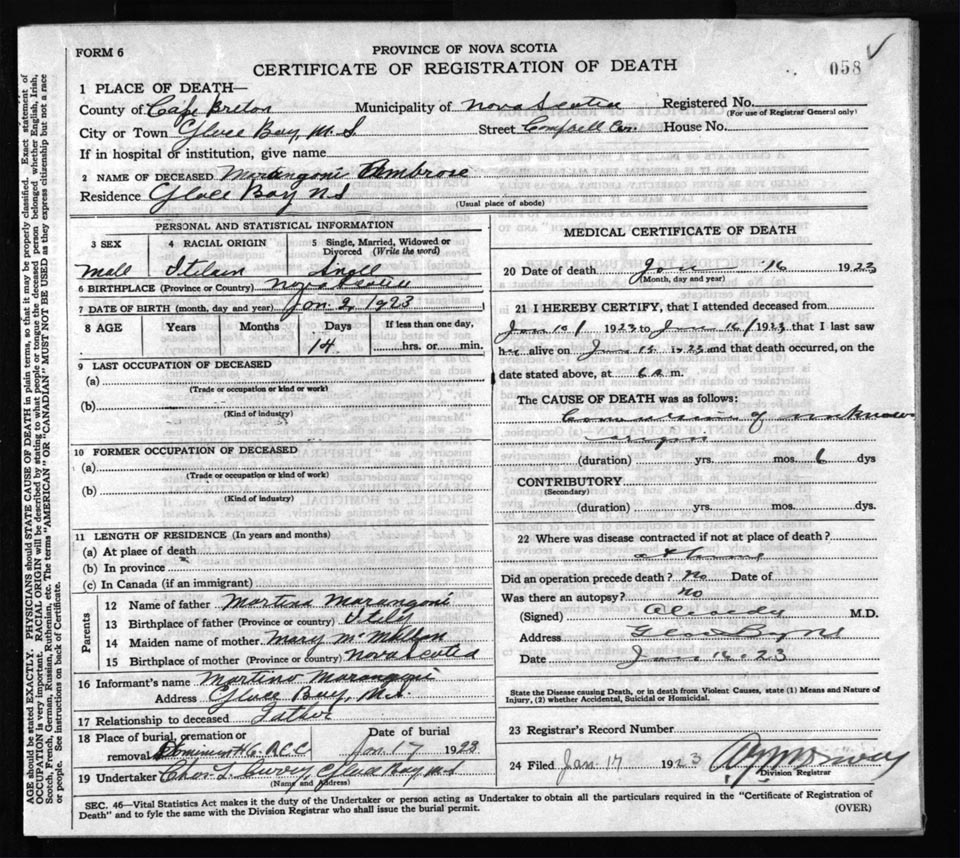 FORM 6
PROVINCE OF NOVA SCOTIA
CERTIFICATE OF REGISTRATION OF DEATH
058
1 PLACE OF DEATH—
County of Cape Breton Municipality of Nova Scotia Registered No.
(For use of Registrar General only)
City or Town Glace Bay N.S. Street Campbell House No.
If in hospital or institution, give name
2 NAME OF DECEASED Marangoni Ambrose
Residence Glace Bay N S
(Usual place of abode)
PERSONAL AND STATISTICAL INFORMATION
3 SEX 4 RACIAL ORIGIN 5 Single, Married, Widowed or Divorced (Write the word)
Male Itilain Single
6 BIRTHPLACE (Province or Country) Nova Scotia
7 DATE OF BIRTH (month, day and year) Jan. 2, 1923
8 AGE Years Months Days If less than one day,
14 hrs. or min.
9 LAST OCCUPATION OF DECEASED
(a)
(Trade or occupation or kind or work)
(b)
(Kind of industry)
10 FORMER OCCUPATION OF DECEASED
(a)
(Trade or occupation or kind or work)
(b)
(Kind of industry)
11 LENGTH OF RESIDENCE (In years and months)
(a) At place of death
(b) In province
(c) In Canada (if an immigrant)
Parents
12 Name of father Martino Marangoni
13 Birthplace of father (Province or country)
14 Maiden name of mother Mary McMillan
15 Birthplace of mother (Province or country) Nova Scotia
16 Informant's name Martino Marangoni
Address Glace Bay, N.S.
17 Relationship to deceased Father
18 Place of burial, cremation or removal Date of burial
Jan. 17 1923
19 Undertaker Chas. L. Curry, Glace Bay N S
(Name and Address)
MEDICAL CERTIFICATE OF DEATH
20 Date of death 16 1923
(Month, day and year)
21 I HEREBY CERTIFY, that I attended deceased from
Jan 10/ 1923 to Jan 16/ 1923 that I last saw
alive on Jan 15 1923 and that death occurred, on the
date stated above, at 6 A. m.
The CAUSE OF DEATH was as follows:
Convulsion of unknown
origin
(duration) yrs. mos. 6 dys
CONTRIBUTORY
(Secondary)
(duration) yrs. mos. dys
22 Where was disease contracted if not at place of death?
at home
Did an operation precede death? No Date of
Was there an autopsy? No
(Signed) M.D.
Address Glace Bay NS
Date Jan. 16. 23
State the Disease causing Death, or in death from Violent Causes, state (1) Means and Nature of Injury, (2) whether Accidental, Suicidal or Homicidal.
23 Registrar's Record Number
24 Filed Jan. 17 1923
Division Registrar
SEC. 46—Vital Statistics Act makes it the duty of the Undertaker or person acting as Undertaker to obtain all the particulars required in the "Certificate of Registration of
Death" and to fyle the same with the Division Registrar who shall issue the burial permit.
(OVER)
AGE should be stated EXACTLY. PHYSICIANS should STATE CAUSE OF DEATH in plain terms, so that it may be properly classified. Exact statement of
OCCUPATION is very important. RACIAL ORIGIN will be described by stating to what people or tongue the deceased person belonged whether English, Irish,
Scotch, French, German, Russian, Ruthenian, etc. The terms "AMERICAN" OR "CANADIAN" MUST NOT BE USED as they express citizenship but not a race
or people. See instructions on back of Certificate.